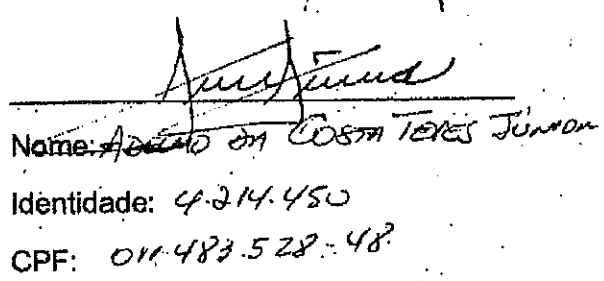 Nome: DA COSTA JÚNIOR
Identidade: 4.214.450
CPF: 011.483.528-48.